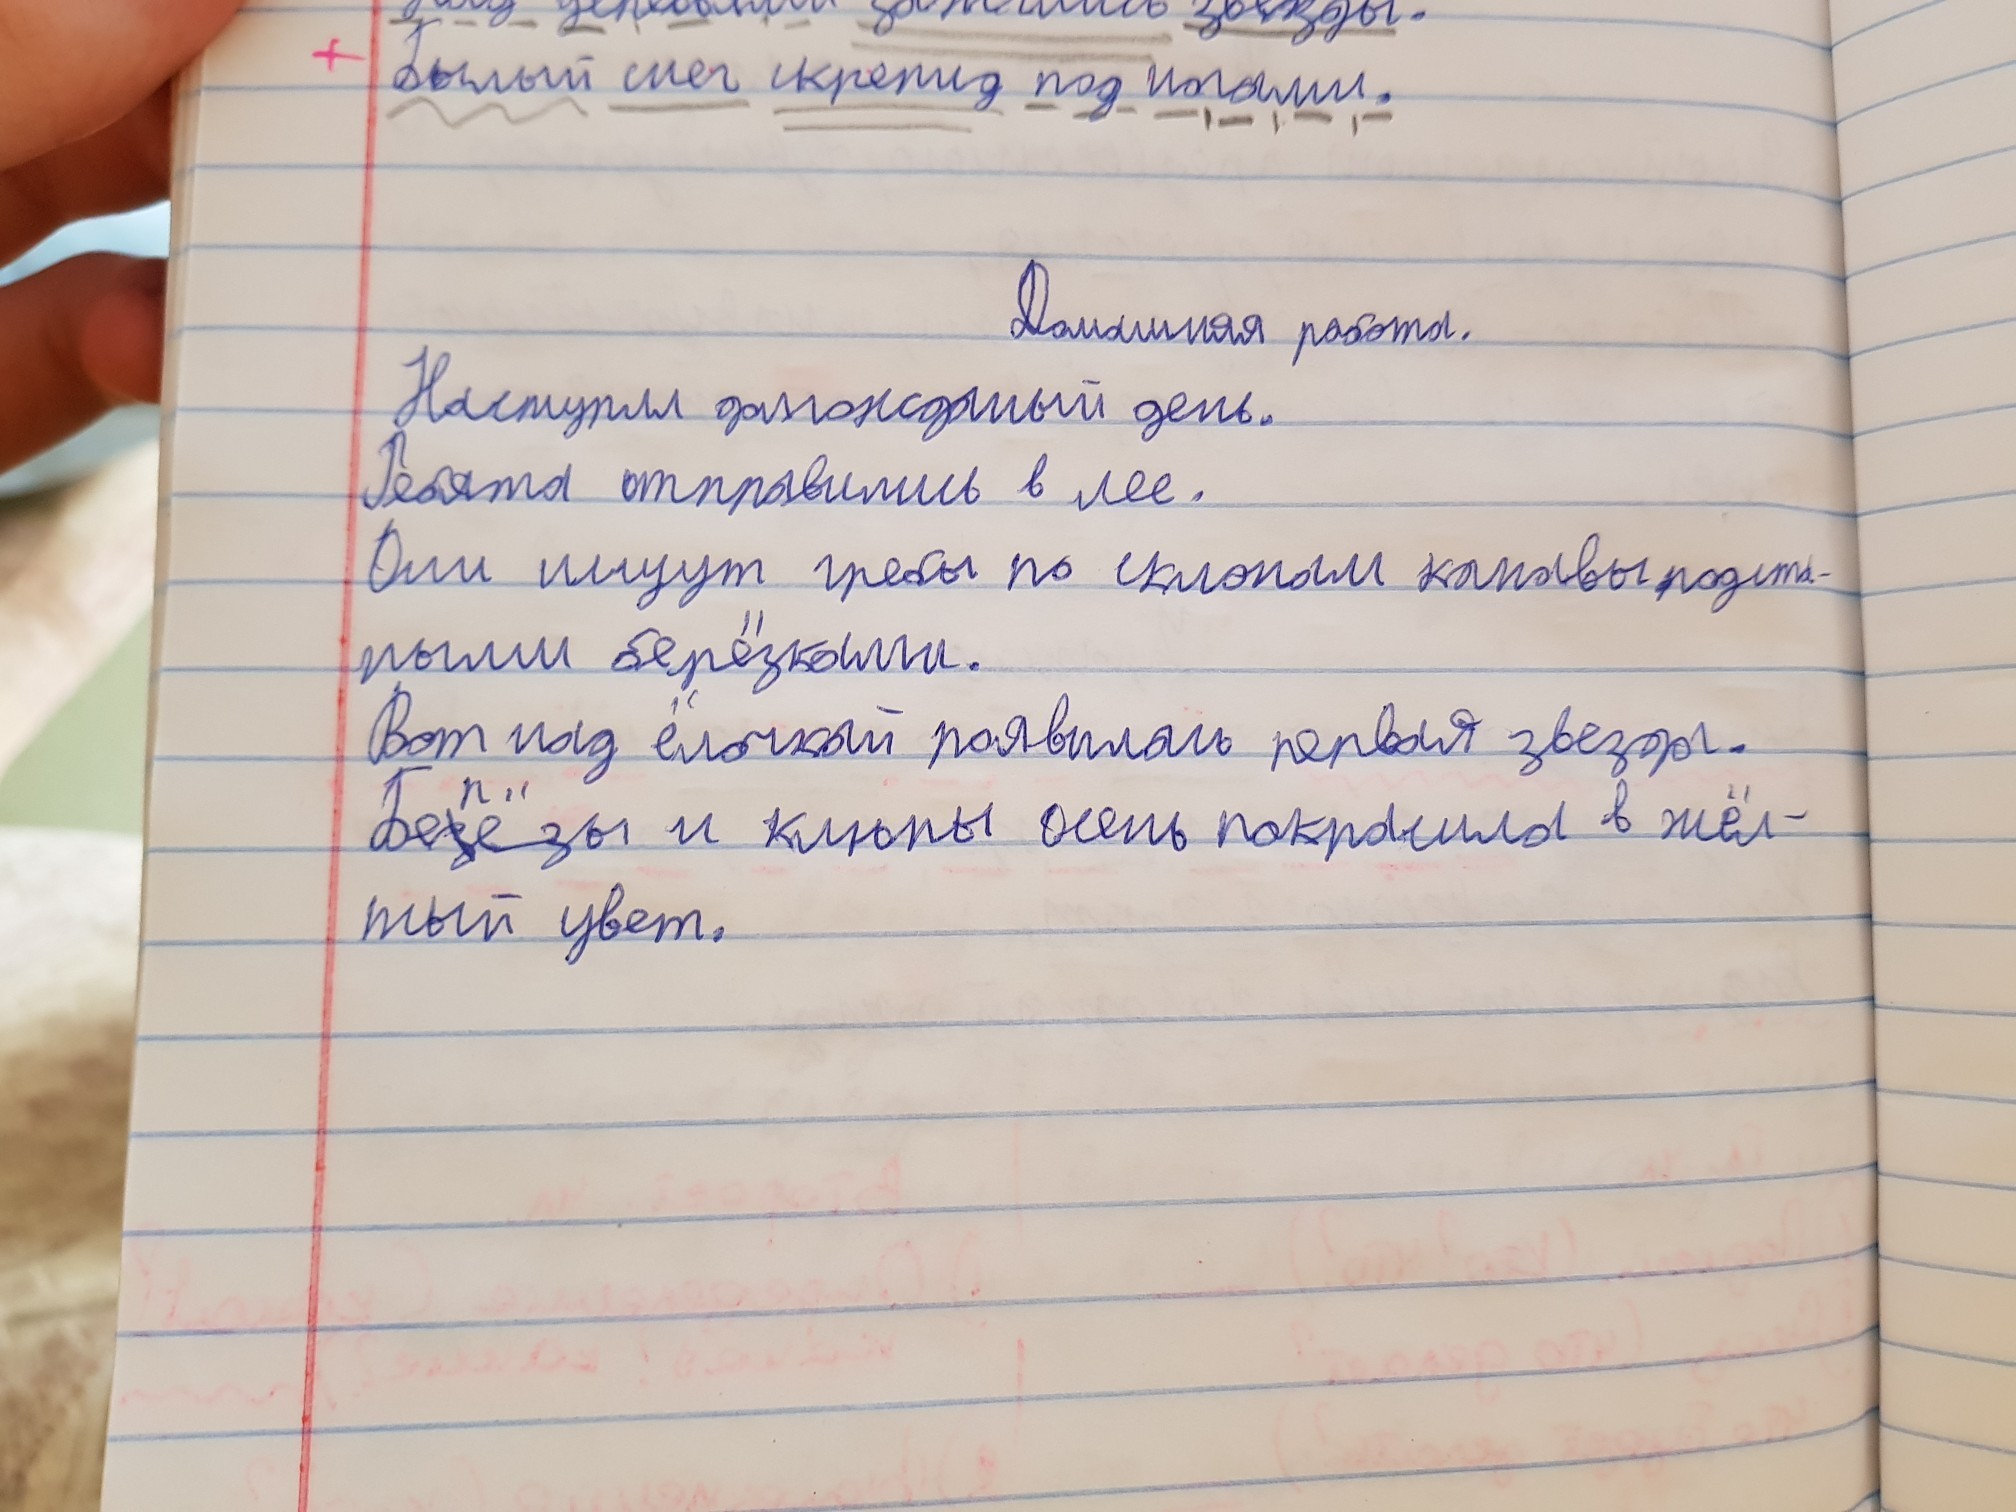 Над деревьями зажглись звёзды.
Белый снег скрепид под ногами.
Домашняя работа.
Наступил долгожданый день.
Ребята отправились в лес.
Они ищут гребы по склонам канавы, под ста-
рыми берёзками.
Вот над ёлочкай появилась первая звезда.
Берёзы и клюны осень покрасила в жёл-
тый цвет.